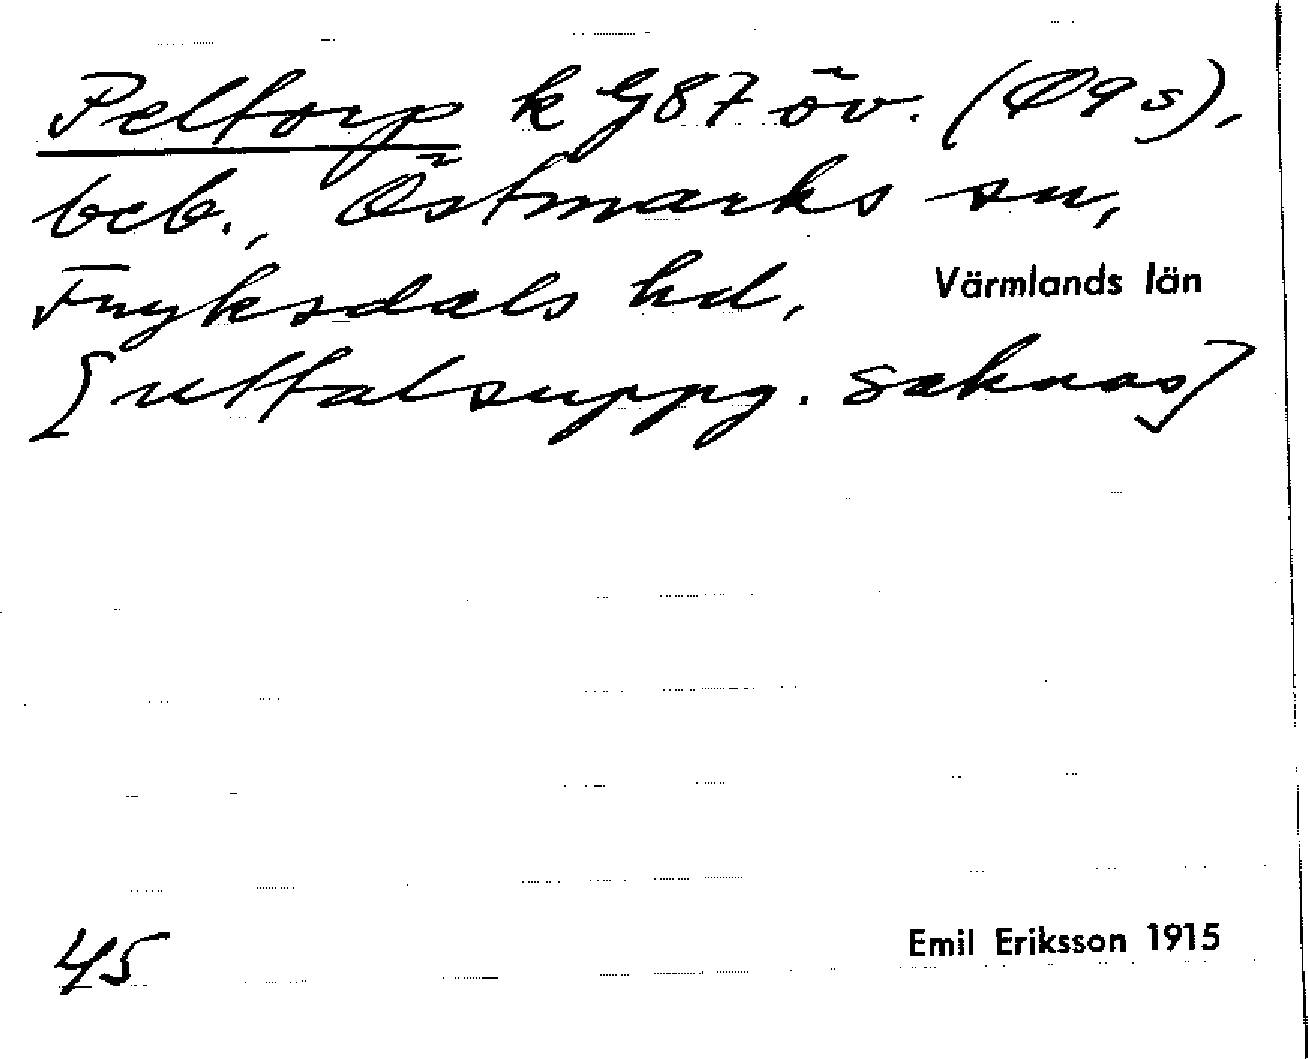 Peltorp k G87 öv. (Ø9s),
beb., Östmarks sn,
Fryksdals hd, Värmlands län
[uttalsuppg. saknas]
45
Emil Eriksson 1915